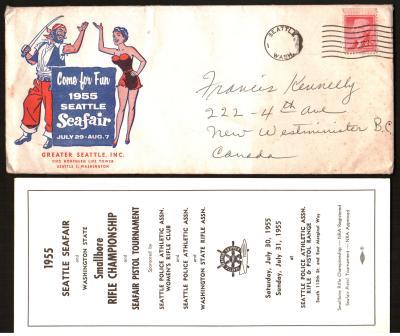 Come for Fun
1955
SEATTLE
Seafair
JULY 29-AUG. 7
GREATER SEATTLE, INC.
1102 NORTHERN LIFE TOWER
SEATTLE 1, WASHINGTON
SEATTLE
WASH.
Francis Kennelly
222 - 4th Ave
New Westminster B.C.
Canada
1955
SEATTLE SEAFAIR
and
WASHINGTON STATE
Smallbore
RIFLE CHAMPIONSHIP
and
SEAFAIR PISTOL TOURNAMENT
Sponsored by
SEATTLE POLICE ATHLETIC ASSN.
WOMEN'S RIFLE CLUB
and
SEATTLE POLICE ATHLETIC ASSN.
and
WASHINGTON STATE RIFLE ASSN.
Saturday, July 30, 1955
Sunday, July 31, 1955
at
SEATTLE POLICE ATHLETIC ASSN.
RIFLE & PISTOL RANGE
South 112th St. and East Marginal Way
Smallbore Rifle Championship — NRA Registered
Seafair Pistol Tournament — NRA Approved